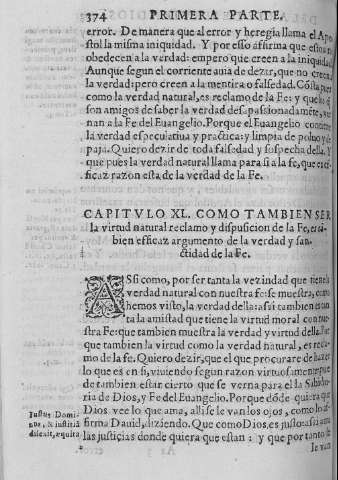 374 PRIMERA PARTE.
error. De manera que al error y heregia llama el Apo
stol la misma iniquidad. Y por esso affirma que estos no
obedecen a la verdad: empero que creen a la iniquidad.
Aunque segun el corriente auia de dezir, que no creen a
la verdad: pero creen a la mentira o falsedad. Cósta pues
como la verdad natural, es reclamo de la Fe: y que los q̃
son amigos de saber la verdad desapassionadamẽte, vie
nan a la Fe del Euangelio. Porque el Euangelio contiene
la verdad especulatiua y practica: y limpia de poluo y de
paja. Quiero dezir de toda falsedad y sospecha della. Y
que pues la verdad natural llama para si a la fe, que es ef
ficaz razon esta de la verdad de la Fe.
CAPITVLO XL. COMO TAMBIEN SER
la virtud natural reclamo y dispusicion de la Fe, es tã
bien efficaz argumento de la verdad y san-
ctidad de la Fe.
ASsi como, por ser tanta la vezindad que tiene la
verdad natural con nuestra fe: se muestra, como
hemos visto, la verdad della: assi tambien es tan
ta la amistad que tiene la virtud moral con nue
stra Fe: que tambien muestra la verdad y virtud della. Por
que tambien la virtud como la verdad natural, es recla
mo de la fe. Quiero dezir, que el que procurare de hazer
lo que es en si, viuiendo segun razon virtuosamente pue
de tambien estar cierto que se verna para el la Sabidu-
ria de Dios, y Fe del Euangelio. Porque dóde quiera que
Dios vee lo que ama, alli se le van los ojos, como lo af
firma Dauid, diziendo. Que como Dios, es justo: assi ama
las justicias donde quiera que estan: y que por tanto de
Iustus Domi
nus, & iustitiã
dilexit, æquita
le van